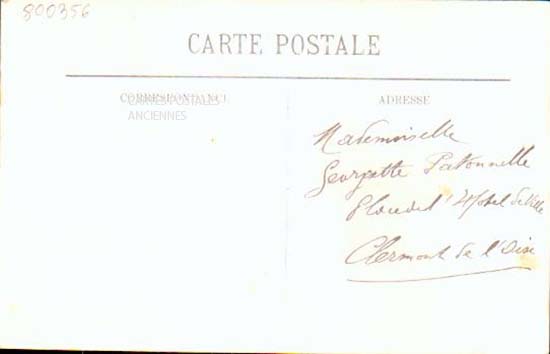 800356
CARTE POSTALE
CORRESPONDANCE
CARTES POSTALES
ANCIENNES
ADRESSE
Mademoiselle
Georgette
Place de l'Hotel de Ville
Clermont de l'Oise